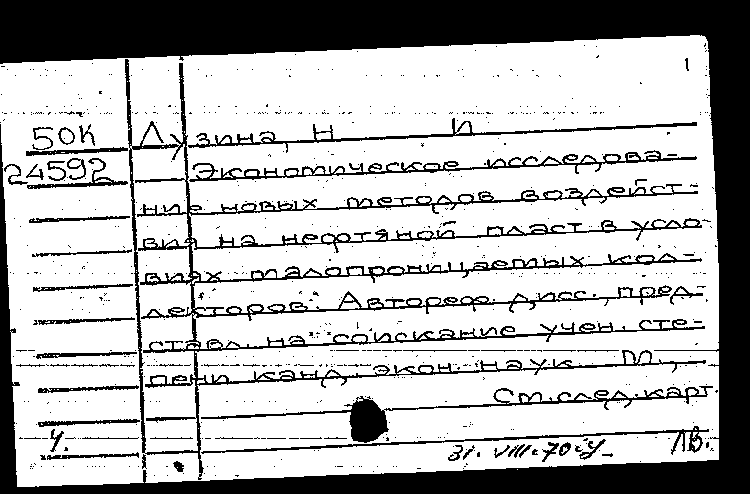 1
50К Лузина, Н И
24592 Экономическое исследова-
ние новых методов воздейст-
вия на нефтяной пласт в усло-
виях малопроницаемых кол-
лекторов. Автореф. дисс., пред-
ставл. на соискание учен. сте-
пени канд. экон. наук. М.,
См. след. карт.
У. 31.VIII.70 У ЛВ.